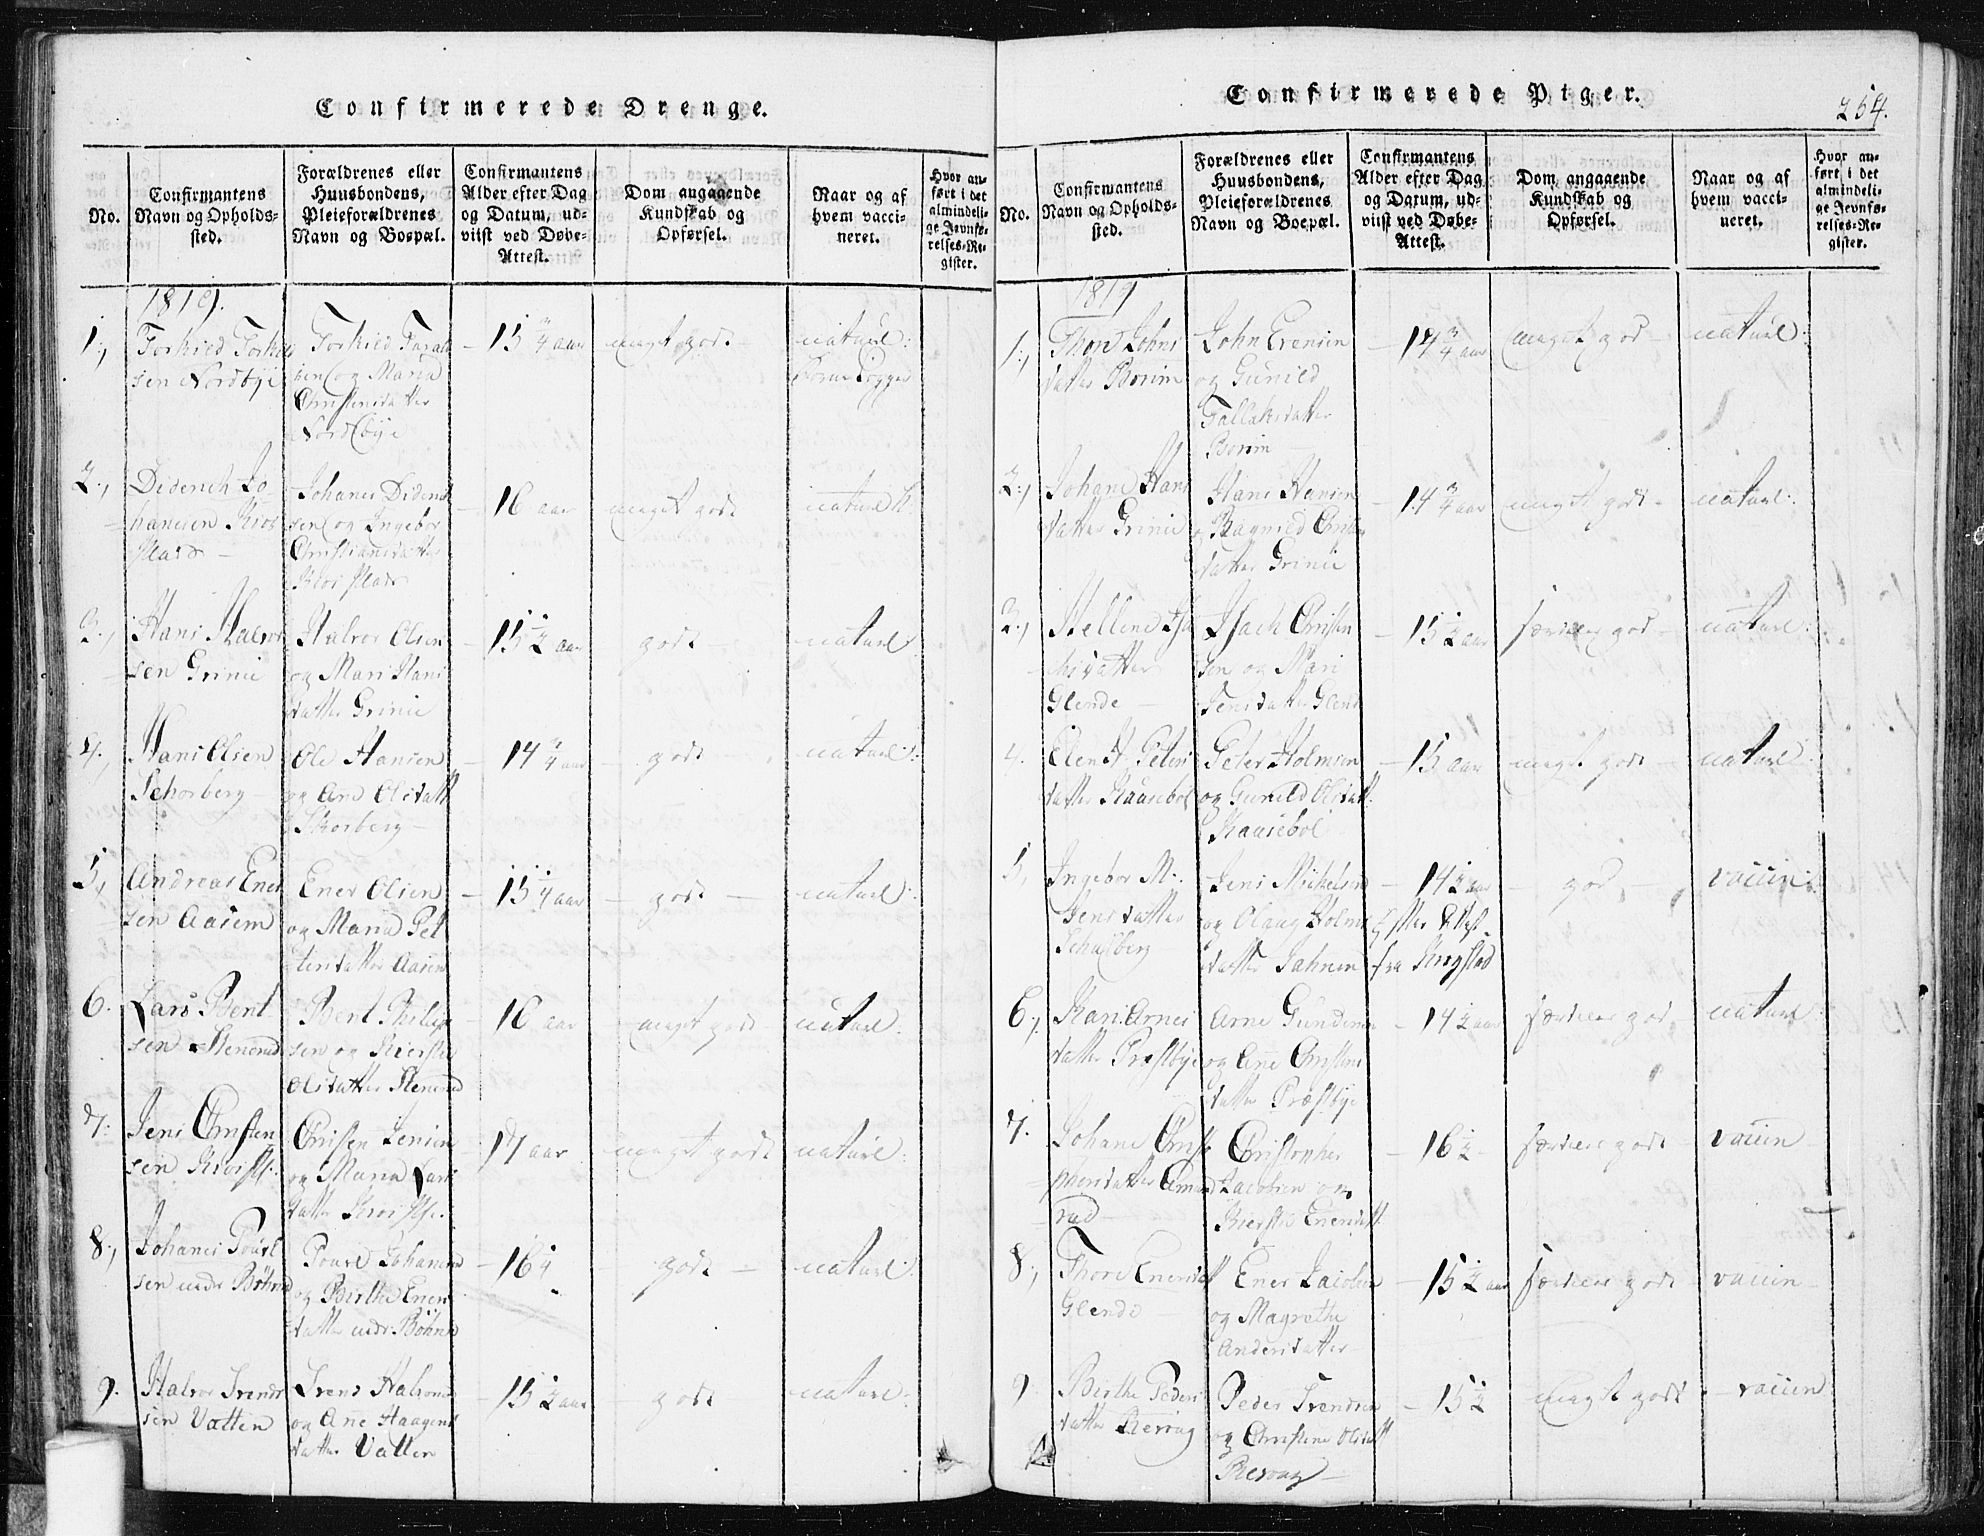 Confirmerede Drenge.
No.
Confirmantens
Navn og Opholds-
sted.
Forældrenes eller
Huusbondens,
Pleieforældrenes
Navn og Boepæl.
Confirmantens
Alder efter Dag
og Datum, ud-
viist ved Døbe-
Attest.
Dom angaaende
Kundskab og
Opførsel.
Naar og af
hvem vacci-
neret.
Hvor an-
ført i det
almindeli-
ge Jevnfø-
relses-Re-
gister.
1819.
1.,
Torkild
sen Nordbye
Torkild
og Maria
Christensdatter
Nordbye
15 3/4 aar
meget godt
naturl:
2.,
Diderich Jo-
hansen Kros
Plads
Johanes Diderich
sen og Ingebor
Christiansdatter
Kros Plads
16 aar
meget godt
naturl:
3.,
Hans Halvor
sen Grinie
Halvor Olsen
og Mari Hans
datter Grinie
15 1/2 aar
godt
naturl:
4.,
Hans Olsen
Schorberg
Ole Hansen
og Ane Olsdatt
Skorberg
14 3/4 aar
godt
naturl:
5.,
Andreas Ener
sen Aasem
Ener Olsen
og Maria Pet
tersdatter Aasem
15 1/4 aar
godt
naturl:
6.
Lars Bent
sen Stenerud
Bent Philip
sen og Kierstie
Olsdatter Stenerud
16 aar
meget godt
naturl:
7.
Jens Christen
sen Kros Pl:
Christen Jensen
og Maria Lars
datter Kros Pl:
17 aar
meget godt
naturl:
8.,
Johanes Pouel
sen
Pouel Johanes
og Birthe Eners
datter
16 1/4
godt
naturl:
9.
Halvor Svends
sen Vatten
Svend Halvors
og Ane Haagens
datter Vatten
15 1/2 aar
godt
naturl:
Confirmerede Piger.
254.
No.
Confirmantens
Navn og Opholds-
sted.
Forældrenes eller
Huusbondens,
Pleieforældrenes
Navn og Boepæl.
Confirmantens
Alder efter Dag
og Datum, ud-
viist ved Døbe-
Attest.
Dom angaaende
Kundskab og
Opførsel.
Naar og af
hvem vacci-
neret.
Hvor an-
ført i det
almindeli-
ge Jevnfø-
relses-Re-
gister.
1819
1.,
Thore Johns
datter Borim
John Evensen
og Gunild
Tallaksdatter
Borim
14 3/4 aar
meget god
naturl:
2.,
Johane Hans
datter Grinie
Hans Hansen
og Ragnild
datter Grinie
14 3/4 aar
meget godt
naturl:
3.,
Hellene Isa
chsdatter
Glende
Isach Christen
sen og Mari
Jensdatter Glend
15 1/2 aar
særdeles god
naturl:
4.
Elen H. Peters
datter Kaasebøl
Peter Holmsen
og Gunild Olsdatt
Kaasebøl
15 aar
meget godt
naturl:
5.
Ingebor M:
Jensdatter
Schulberg
Jens Mikelsen
og Olaug Holms
datter
14 1/2 aar
Efter Attest
fra
god
vaccin:
6.,
Kari Arnes
datter Præstbye
Arne Gundersen
og Ane Christens
datter Præstbye
14 1/2 aar
særdeles god
naturl:
7.
Johane Christo
phersdatter Amund
rud
Christopher
Jacobsen og
Kierstie Enersdatt
16 1/2
særdeles godt
vaccin
8.,
Thore Enersdatt
Glende
Ener Jacobsen
og Magrethe
Andersdatter
15 1/2 aar
særdeles godt
vaccin
9
Birthe Peders
datter
Peder Svendsen
og Christine Olsdatt
15 1/2
meget godt
vaccin